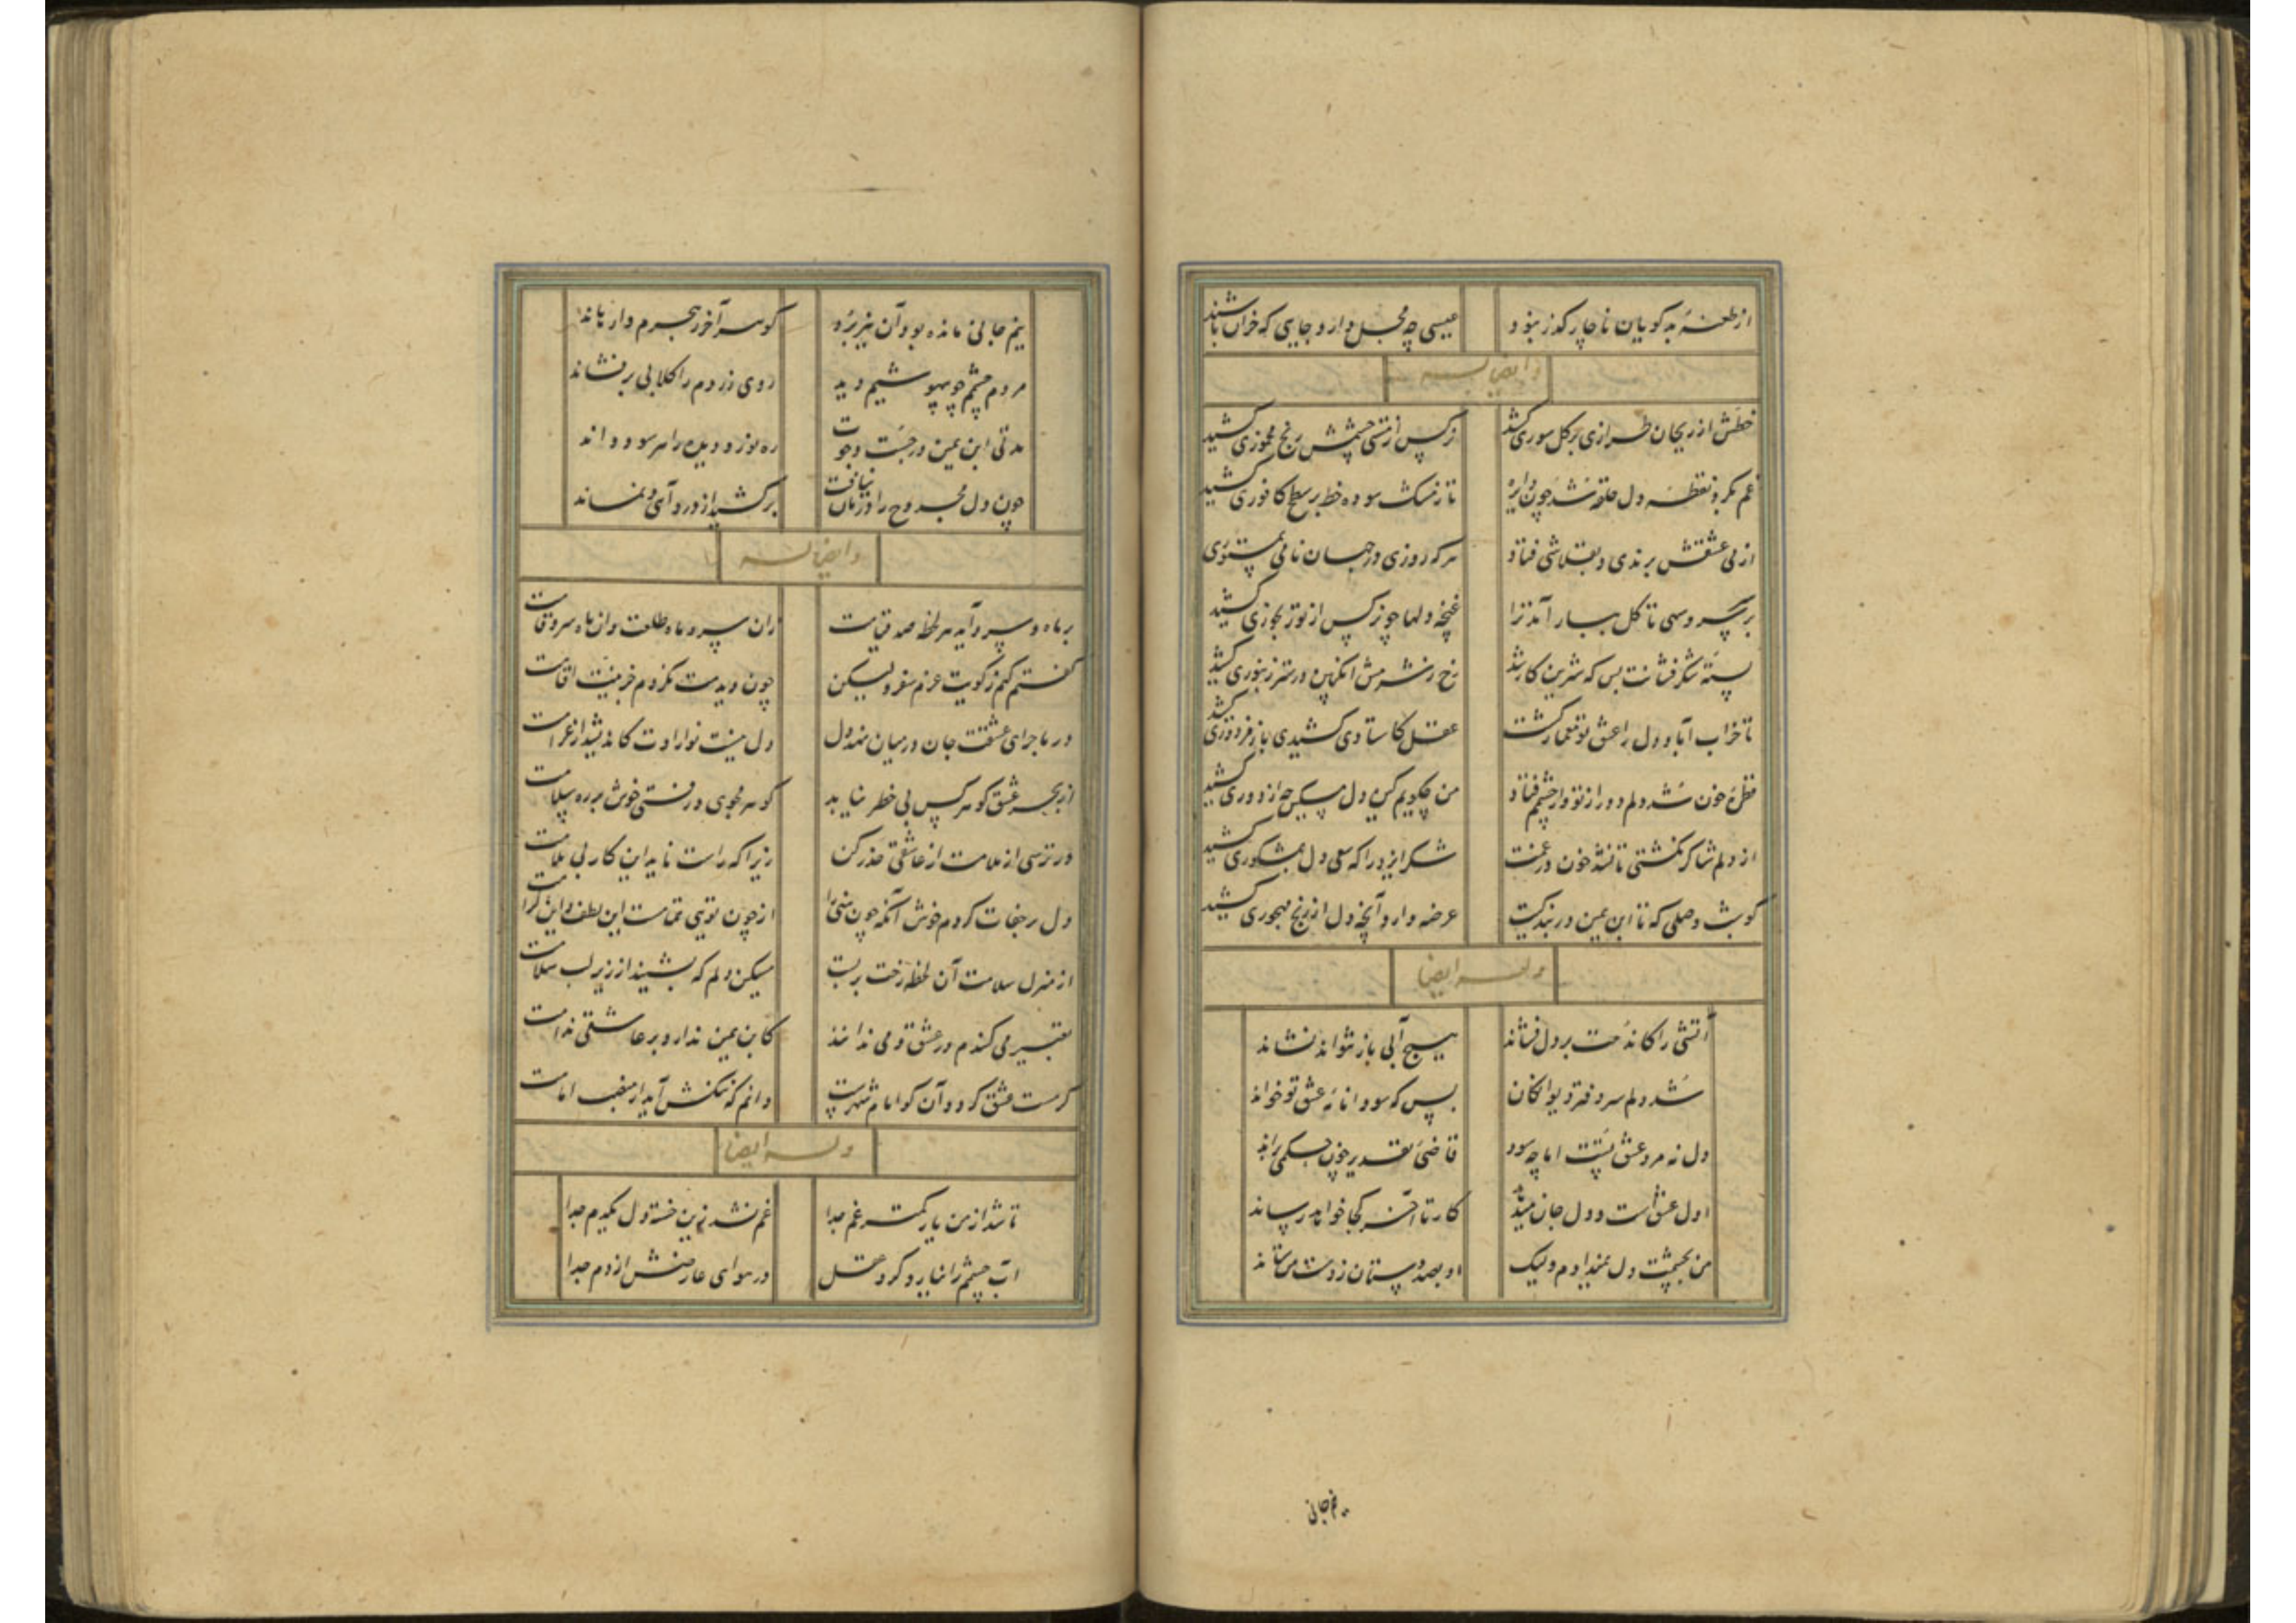 از طعنهٔ بدگویان ناچار گذر نبود عیسی چه محل دارد جایی که خران باشند
وایضا له
خطش از ریحان طرازی بر گل سوری کشید نرگس از مستی چشمش رنج مخموری کشید
غم مگر و نقطه دل حلقه شد چون دایره تا ز مشک سوده خط بر سطح کافوری کشید
از می عشقش برندی و بقلاشی فتاد هر که روزی در جهان نامی بمستوری کشید
بر سر سرو سهی تا گل ببار آمد ترا غنچه دلها چو نرگس از تو رنجوری کشید
پسته شکر فشانت بس که شیرین کار شد رخ ز شرمش انگبین در ستر زنبوری کشید
تا خراب آباد دل را عشق تو معمار گشت عقل کاستادی کشیدی باز مزدوری کشید
قطرهٔ خون شد دلم دور از تو و از چشم فتاد من چگویم کین دل مسکین چه از دوری کشید
از دلم شاکر نگشتی تا نشد خون در غمت شکر ایزد را که سعی دل بمشکوری کشید
کو شب وصلی که تا ابن یمین در بندگیت عرضه دارد آنچه دل از رنج مهجوری کشید
وله ایضا
آتشی را کاندهت بر دل فشاند هیچ آبی باز نتواند نشاند
شد دلم سر دفتر دیوانگان بس که سودا نامهٔ عشق تو خواند
دل نه مرد عشق تست اما چه سود قاضی تقدیر چون حکمی براند
اول عشق است و دل جان میدهد کار تا آخر کجا خواهد رساند
من بچشمت دل نمیدادم ولیک او بصد دستان ز دست من ستاند
نیم جانی
نیم جانی مانده بود آن نیز برد کو سر آخر ز هجرم وارهاند
مردم چشم چو بیهوشیم دید روی زردم را گلابی بر فشاند
مدتی ابن یمین در جست و جوت ره نوز و دیده را هر سو دواند
چون دل مجروح را درمان نیافت بر کشید از درد آهی و نماند
وایضا له
بر ماه و سرو آید هر لحظه صد قیامت زان سرو ماه طلعت وان ماه سرو قامت
گفتم کنم ز کویت عزم سفر ولیکن چون دیدمت نکردم جز نیت اقامت
در ماجرای عشقت جان در میان نهد دل دل نیست نوارادت کاندیشد از غرامت
از بحر عشق گوهر کس بی خطر نیابد گوهر مجوی و رفتی خوش بر ره سلامت
ور ترسی از ملامت از عاشقی حذر کن زیرا که راست ناید این کار بی ملامت
دل رجفات کردم خوش آنکه چون منی را از چون تویی تمامست این لطف و این کرامت
از منزل سلامت آن لحظه رخت بر بست مسکین دلم که بشنید از زیر لب سلامت
تعییر می کنندم در عشق و می ندانند کابن یمین ندارد بر عاشقی ندامت
گر مست عشق گردد آن کو امام شهرست دانم که ننگش آید از منصب امامت
وله ایضا
تا شد از من یار کمتر غم جدا غم نشد زین خسته دل یکدم جدا
آب چشمم را نیارد کرد عقل در هوای عارضش از دم جدا